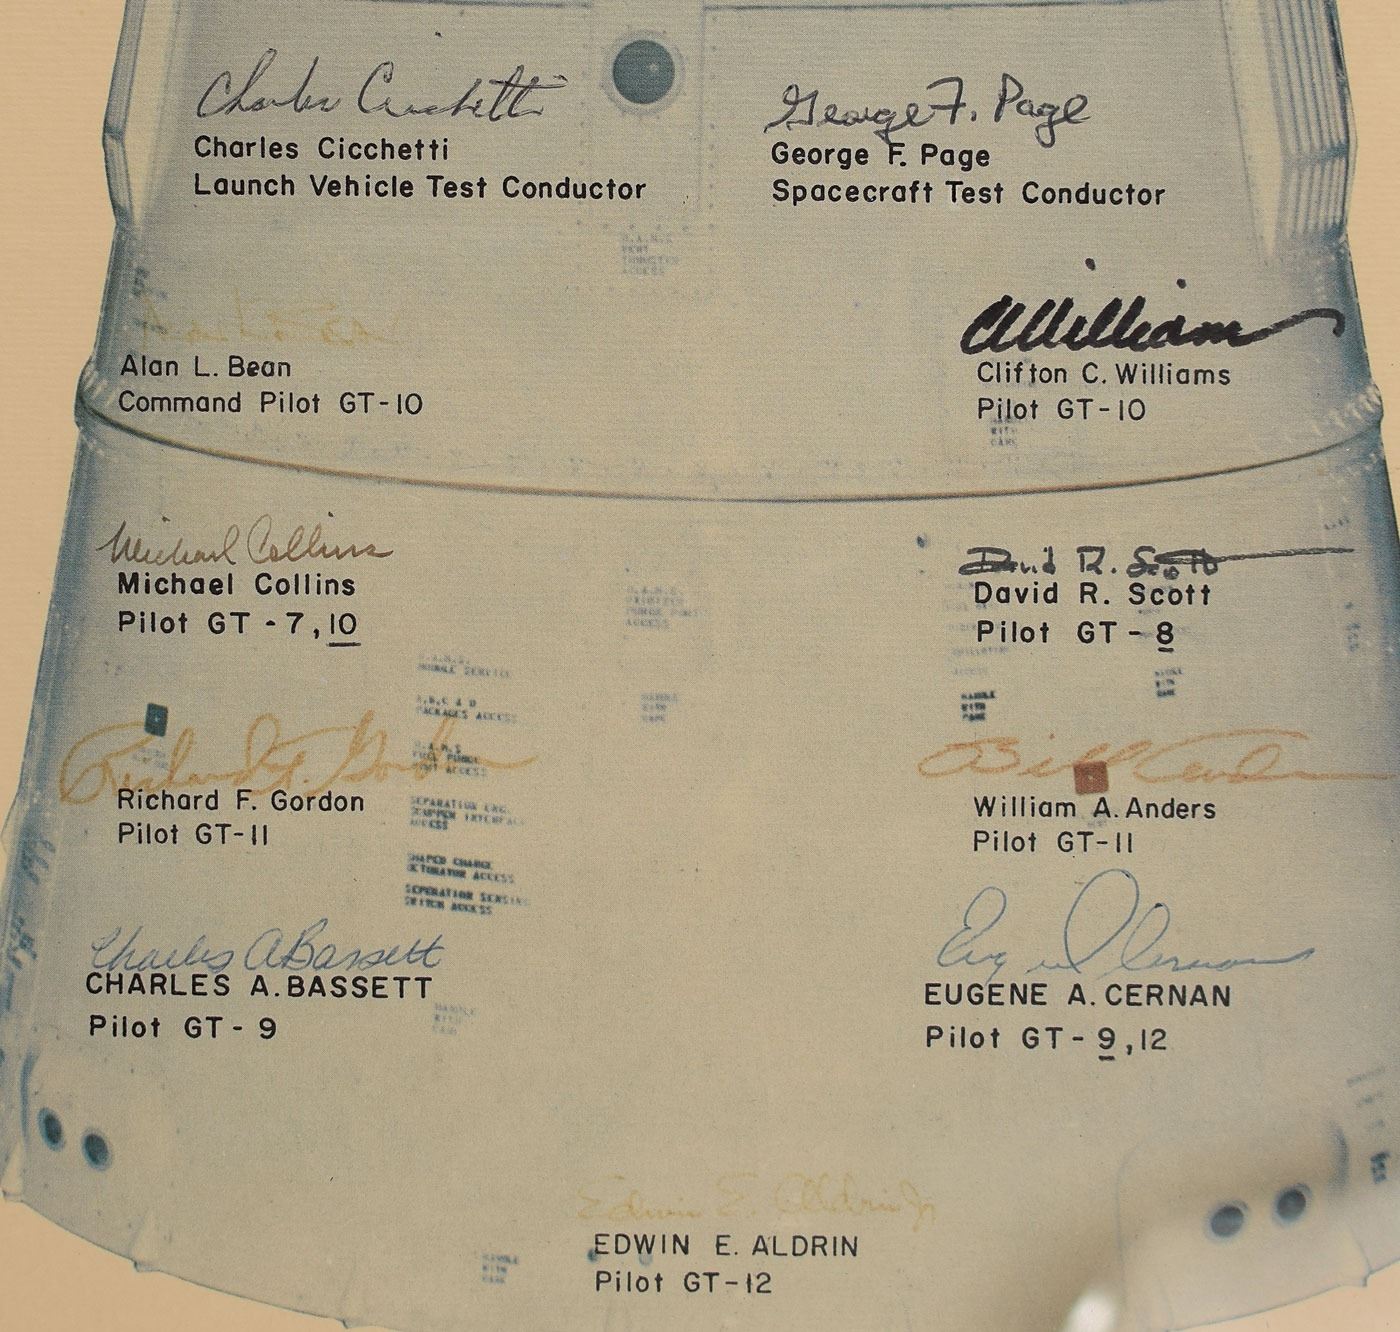 Charles Cicchetti
Charles Cicchetti
Launch Vehicle Test Conductor
George F. Page
George F. Page
Spacecraft Test Conductor
Alan L. Bean
Command Pilot GT-10
CWilliams
Clifton C. Williams
Pilot GT-10
Michael Collins
Michael Collins
Pilot GT-7,10
David R. Scott
David R. Scott
Pilot GT-8
HANDLE
WITH
CARE
Richard F. Gordon
Richard F. Gordon
Pilot GT-11
Bill Anders
William A. Anders
Pilot GT-11
SHAPED CHARGE
DETONATOR ACCESS
SEPERATION SENSING
SWITCH ACCESS
Charles A Bassett
CHARLES A. BASSETT
Pilot GT-9
Eugene Cernan
EUGENE A. CERNAN
Pilot GT-9,12
Edwin E. Aldrin Jr
EDWIN E. ALDRIN
Pilot GT-12